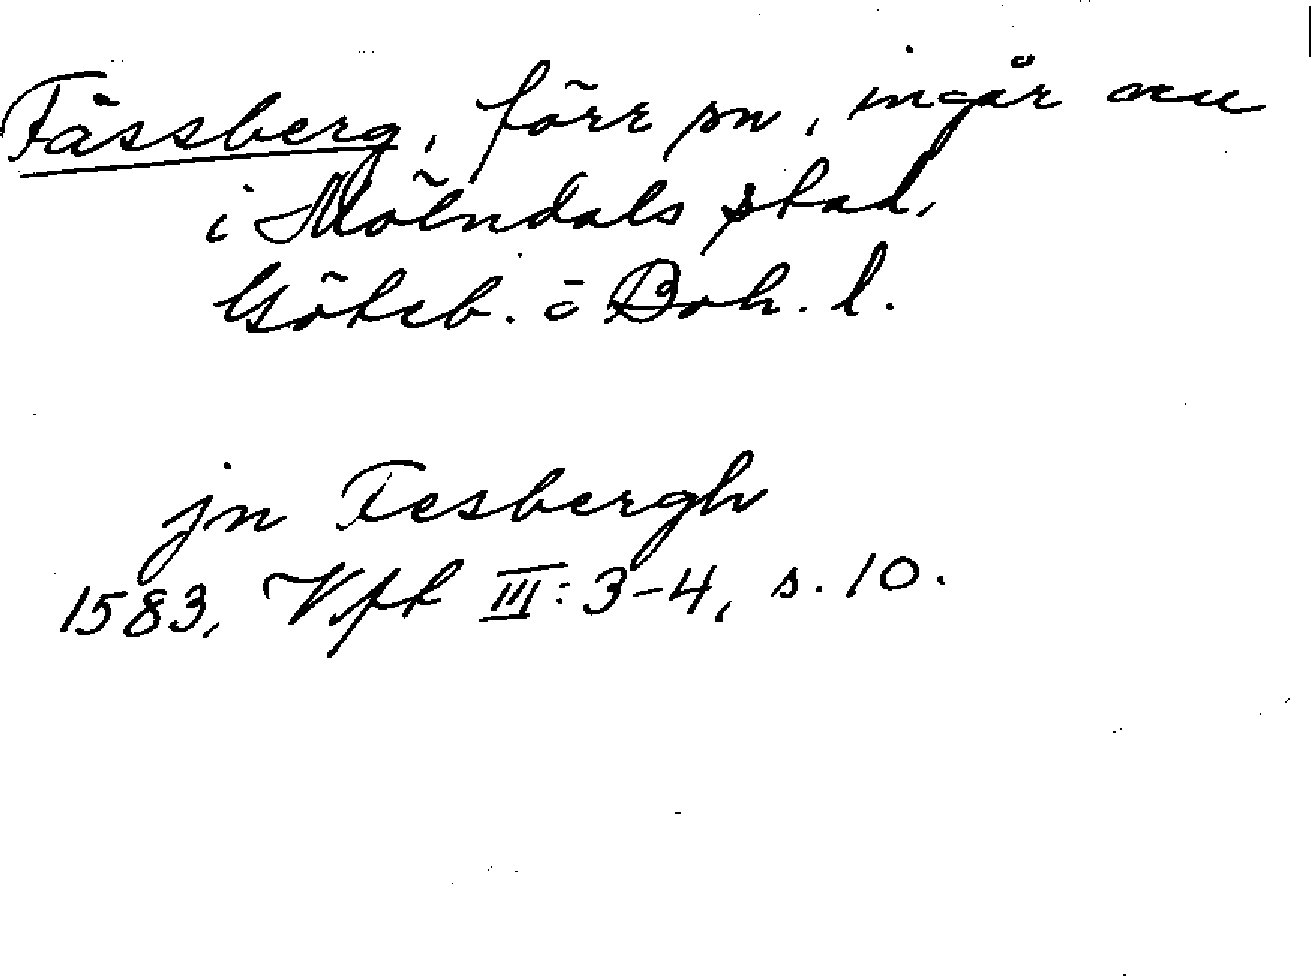 Fässberg, förr sn, ingår nu
i Mölndals stad,
Göteb. o Boh. l.
jn Fesbergh
1583, Vfl III: 3-4, s. 10.